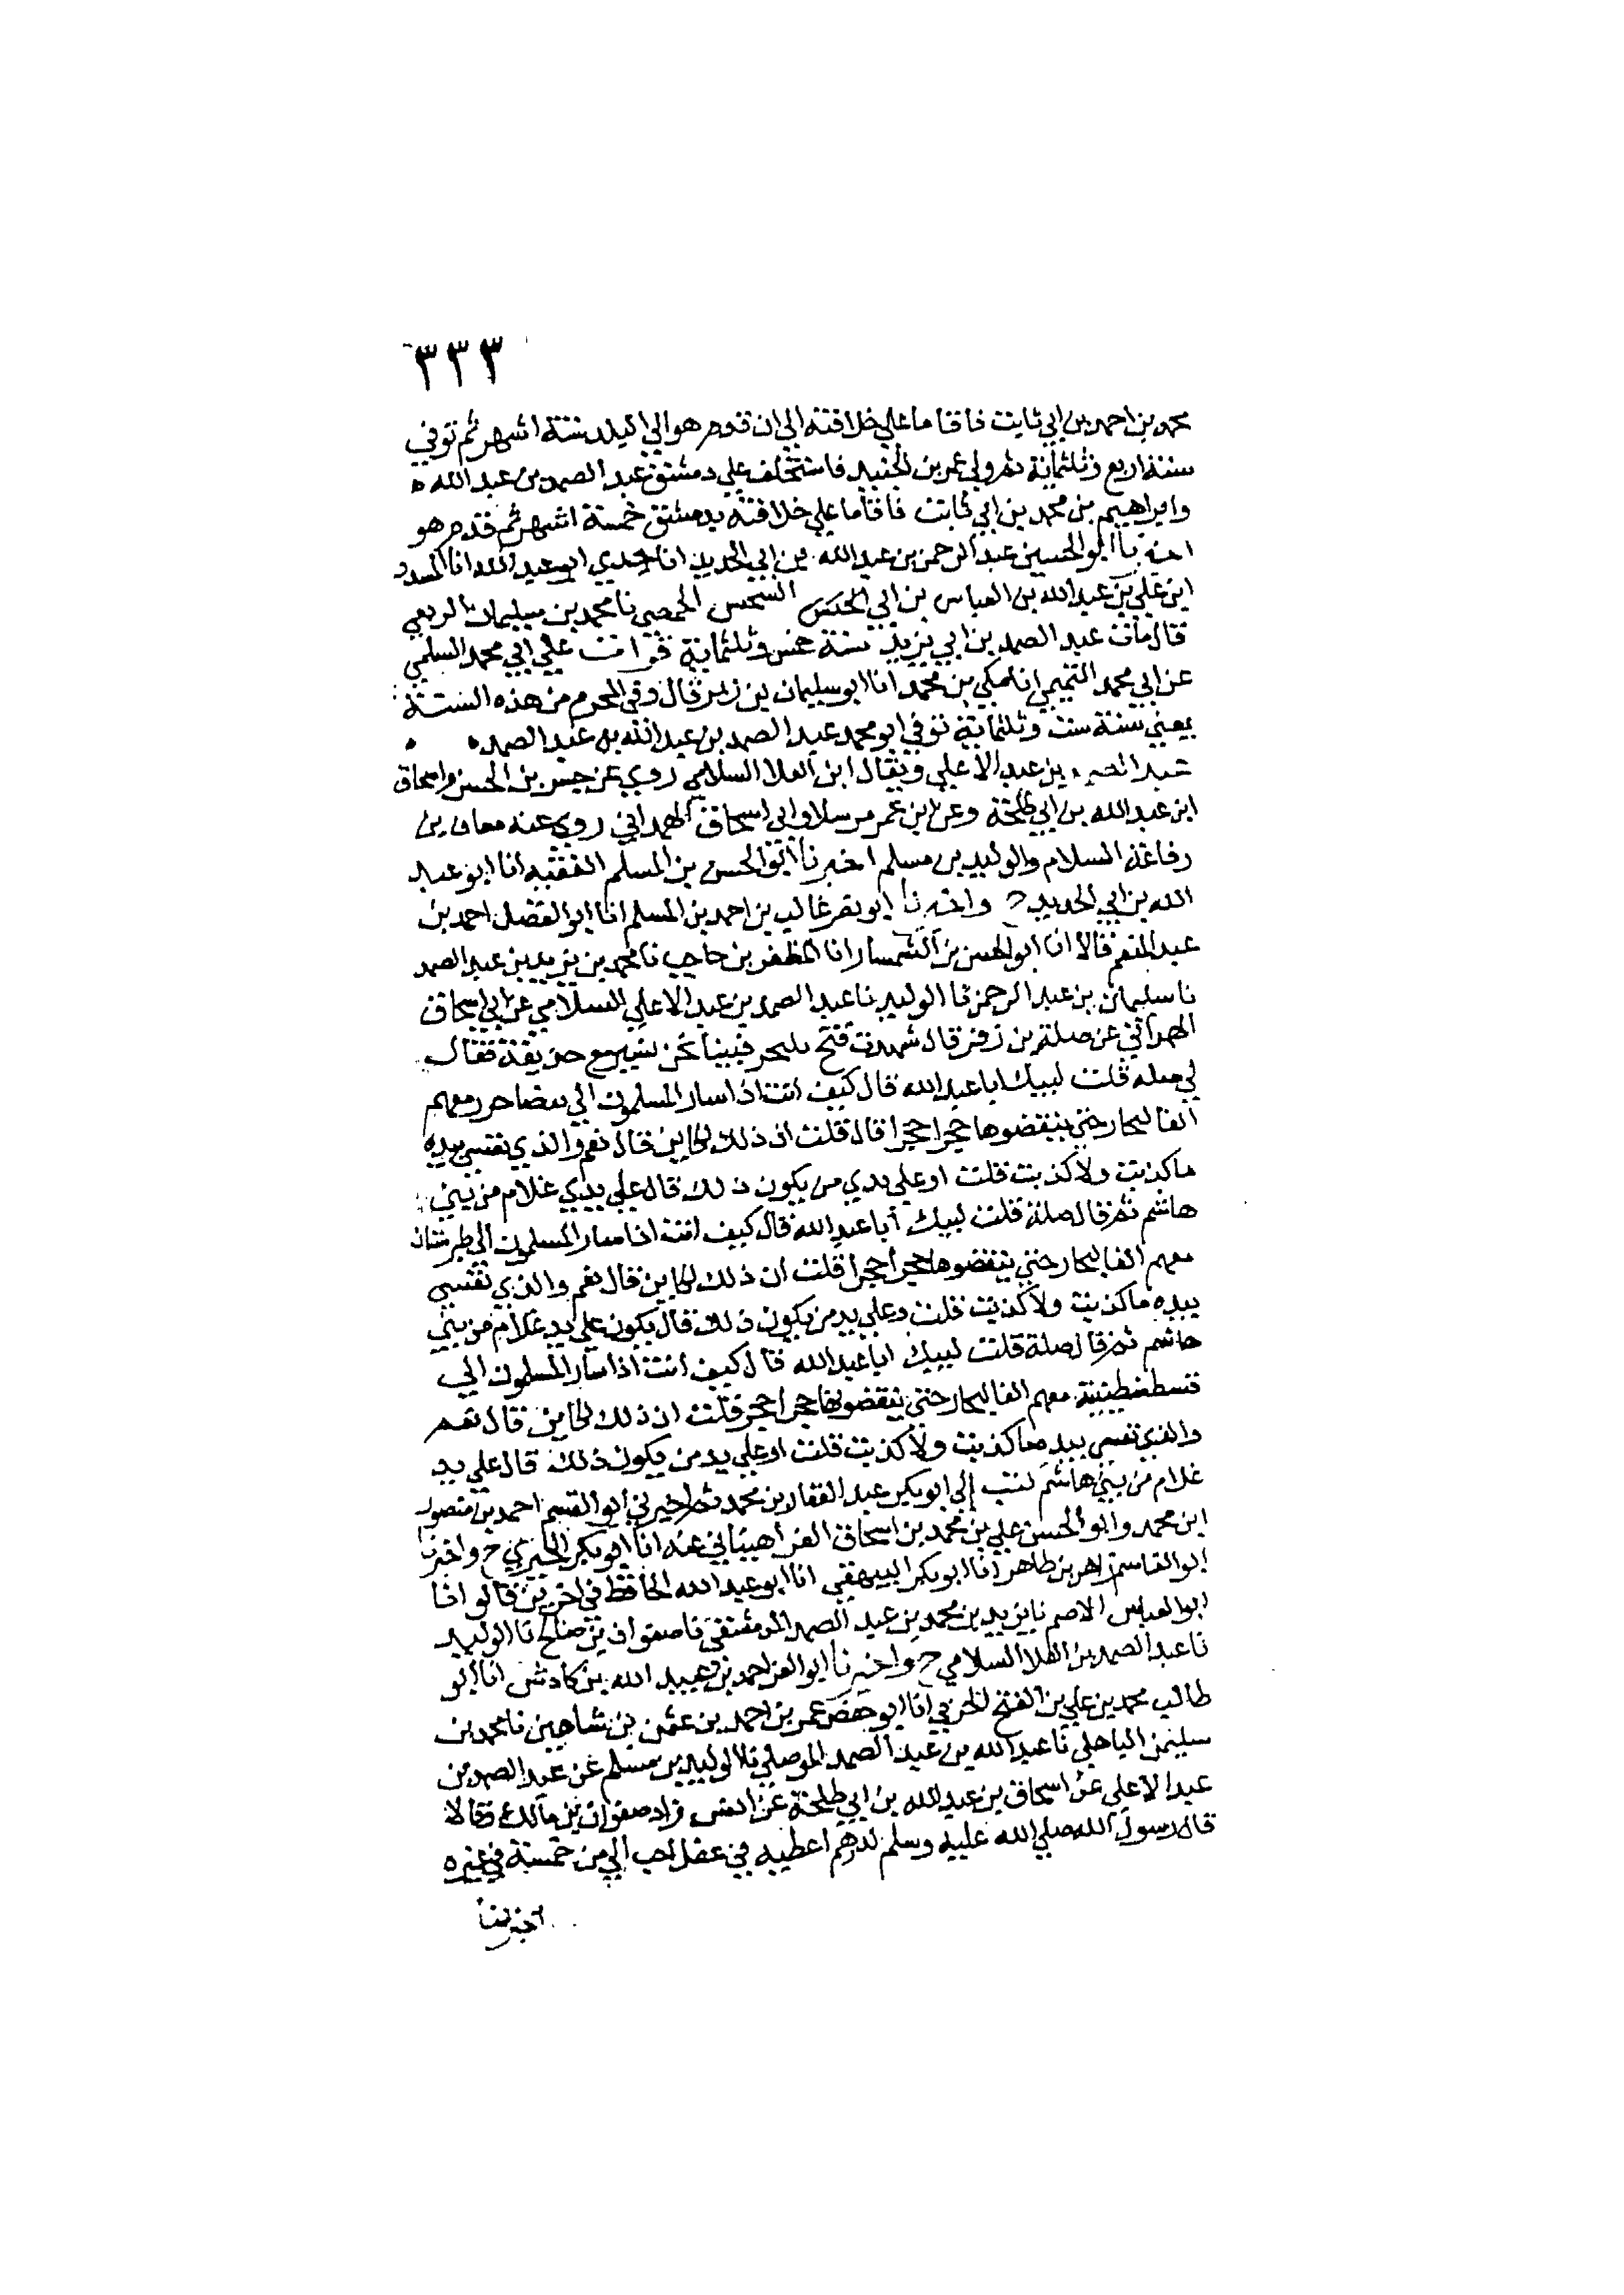 ٣٣٣
محمد بن احمد بن ابي ثابت فاقاما علي خلافته الي ان قدم هو الي البلد ستة اشهر ثم توفي
سنة اربع وثلثمائة ثم ولي عمر بن الجنيد فاستخلف علي دمشق عبد الصمد بن عبد الله
وابراهيم بن محمد بن ابي ثابت فاقاما علي خلافته بدمشق خمسة اشهر ثم قدم هو
اخبرنا ابو الحسين عبد الرحمن بن عبد الله بن ابي الحديد انا جدي ابو عبد الله انا المسدد
ابن علي بن عبد الله بن العباس بن ابي السجيس الحمصي نا محمد بن سليمان الربعي
قال مات عبد الصمد بن ابي يزيد سنة خمس وثلثمائة قرات علي ابي محمد السلمي
عن ابي محمد التميمي انا مكي بن محمد انا ابو سليمان بن زبر قال وفي المحرم من هذه السنة
يعني سنة ست وثلثمائة توفي ابو محمد عبد الصمد بن عبد الله بن عبد الصمد
عبد الصمد بن عبد الاعلي ويقال ابن العلا السلامي روي عن الحسن واسحاق
ابن عبد الله بن ابي طلحة وعن ابن عمر مرسلا وابي اسحاق الهمداني روي عنه معان بن
رفاعة السلام والوليد بن مسلم اخبرنا ابو الحسن بن المسلم الفقيه انا ابو عبد
الله بن ابي الحديد ح واخبرنا ابو نصر غالب بن احمد بن المسلم انا ابو الفضل احمد بن
عبد المنعم قالا انا ابو الحسن بن السمسار انا المظفر بن حاجب نا محمد بن يزيد بن عبد الصمد
نا سليمان بن عبد الرحمن نا الوليد نا عبد الصمد بن عبد الاعلي السلامي عن ابي اسحاق
الهمداني عن صلة بن زفر قال شهدت فتح فبينا نحن نسير مع حذيفة فقال
لي صله قلت لبيك ابا عبد الله قال كيف انت اذا سار المسلمون الي معهم
الفا لبحار حتي ينقضوها حجرا حجرا قال قلت ان ذلك لكاين قال نعم والذي نفسي بيده
ما كذبت ولا كذبت قلت او علي يدي من يكون ذلك قال علي يدي غلام من بني
هاشم ثم قال صلة قلت لبيك أبا عبد الله قال كيف انت اذا سار المسلمون الي طبرستان
معهم الفا لبحار حتي ينقضوها حجرا حجرا قلت ان ذلك لكاين قال نعم والذي نفسي
بيده ما كذبت ولا كذبت قلت وعلي يد من يكون ذلك قال يكون علي يد غلام من بني
هاشم ثم قال صلة قلت لبيك ابا عبد الله قال كيف انت اذا سار المسلمون الي
قسطنطينية معهم الفا لبحار حتي ينقضوها حجرا حجر قلت ان ذلك لكاين قال نعم
والذي نفسي بيده ما كذبت ولا كذبت قلت او علي يد من يكون ذلك قال علي يد
غلام من بني هاشم كتب إلي ابو بكر عبد الغفار بن محمد ثم اخبرني ابو القسم احمد بن منصور
ابن محمد وابو الحسن علي بن محمد بن اسحاق عنه انا ابو بكر الحيري ح واخبرنا
ابو القاسم زاهر بن طاهر انا ابو بكر البيهقي انا ابو عبد الله الحافظ في اخرين قالوا انا
ابو العباس الاصم نا يزيد بن محمد بن عبد الصمد الدمشقي نا صفوان بن صالح نا الوليد
نا عبد الصمد بن العلا السلامي ح واخبرنا ابو العز احمد بن عبيد الله بن كادش انا ابو
طالب محمد بن علي بن الفتح الحربي انا ابو حفص عمر بن احمد بن عثمن بن شاهين نا محمد بن
سليمن الباهلي نا عبد الله بن عبد الصمد الموصلي نا الوليد بن مسلم عن عبد الصمد بن
عبد الاعلي عن اسحاق بن عبد الله بن ابي طلحة عن انس زاد صفوان بن مالك وقالا
قال رسول الله صلي الله عليه وسلم لدرهم اعطيه في عقل احب الي من خمسة في غيره
اخبرنا